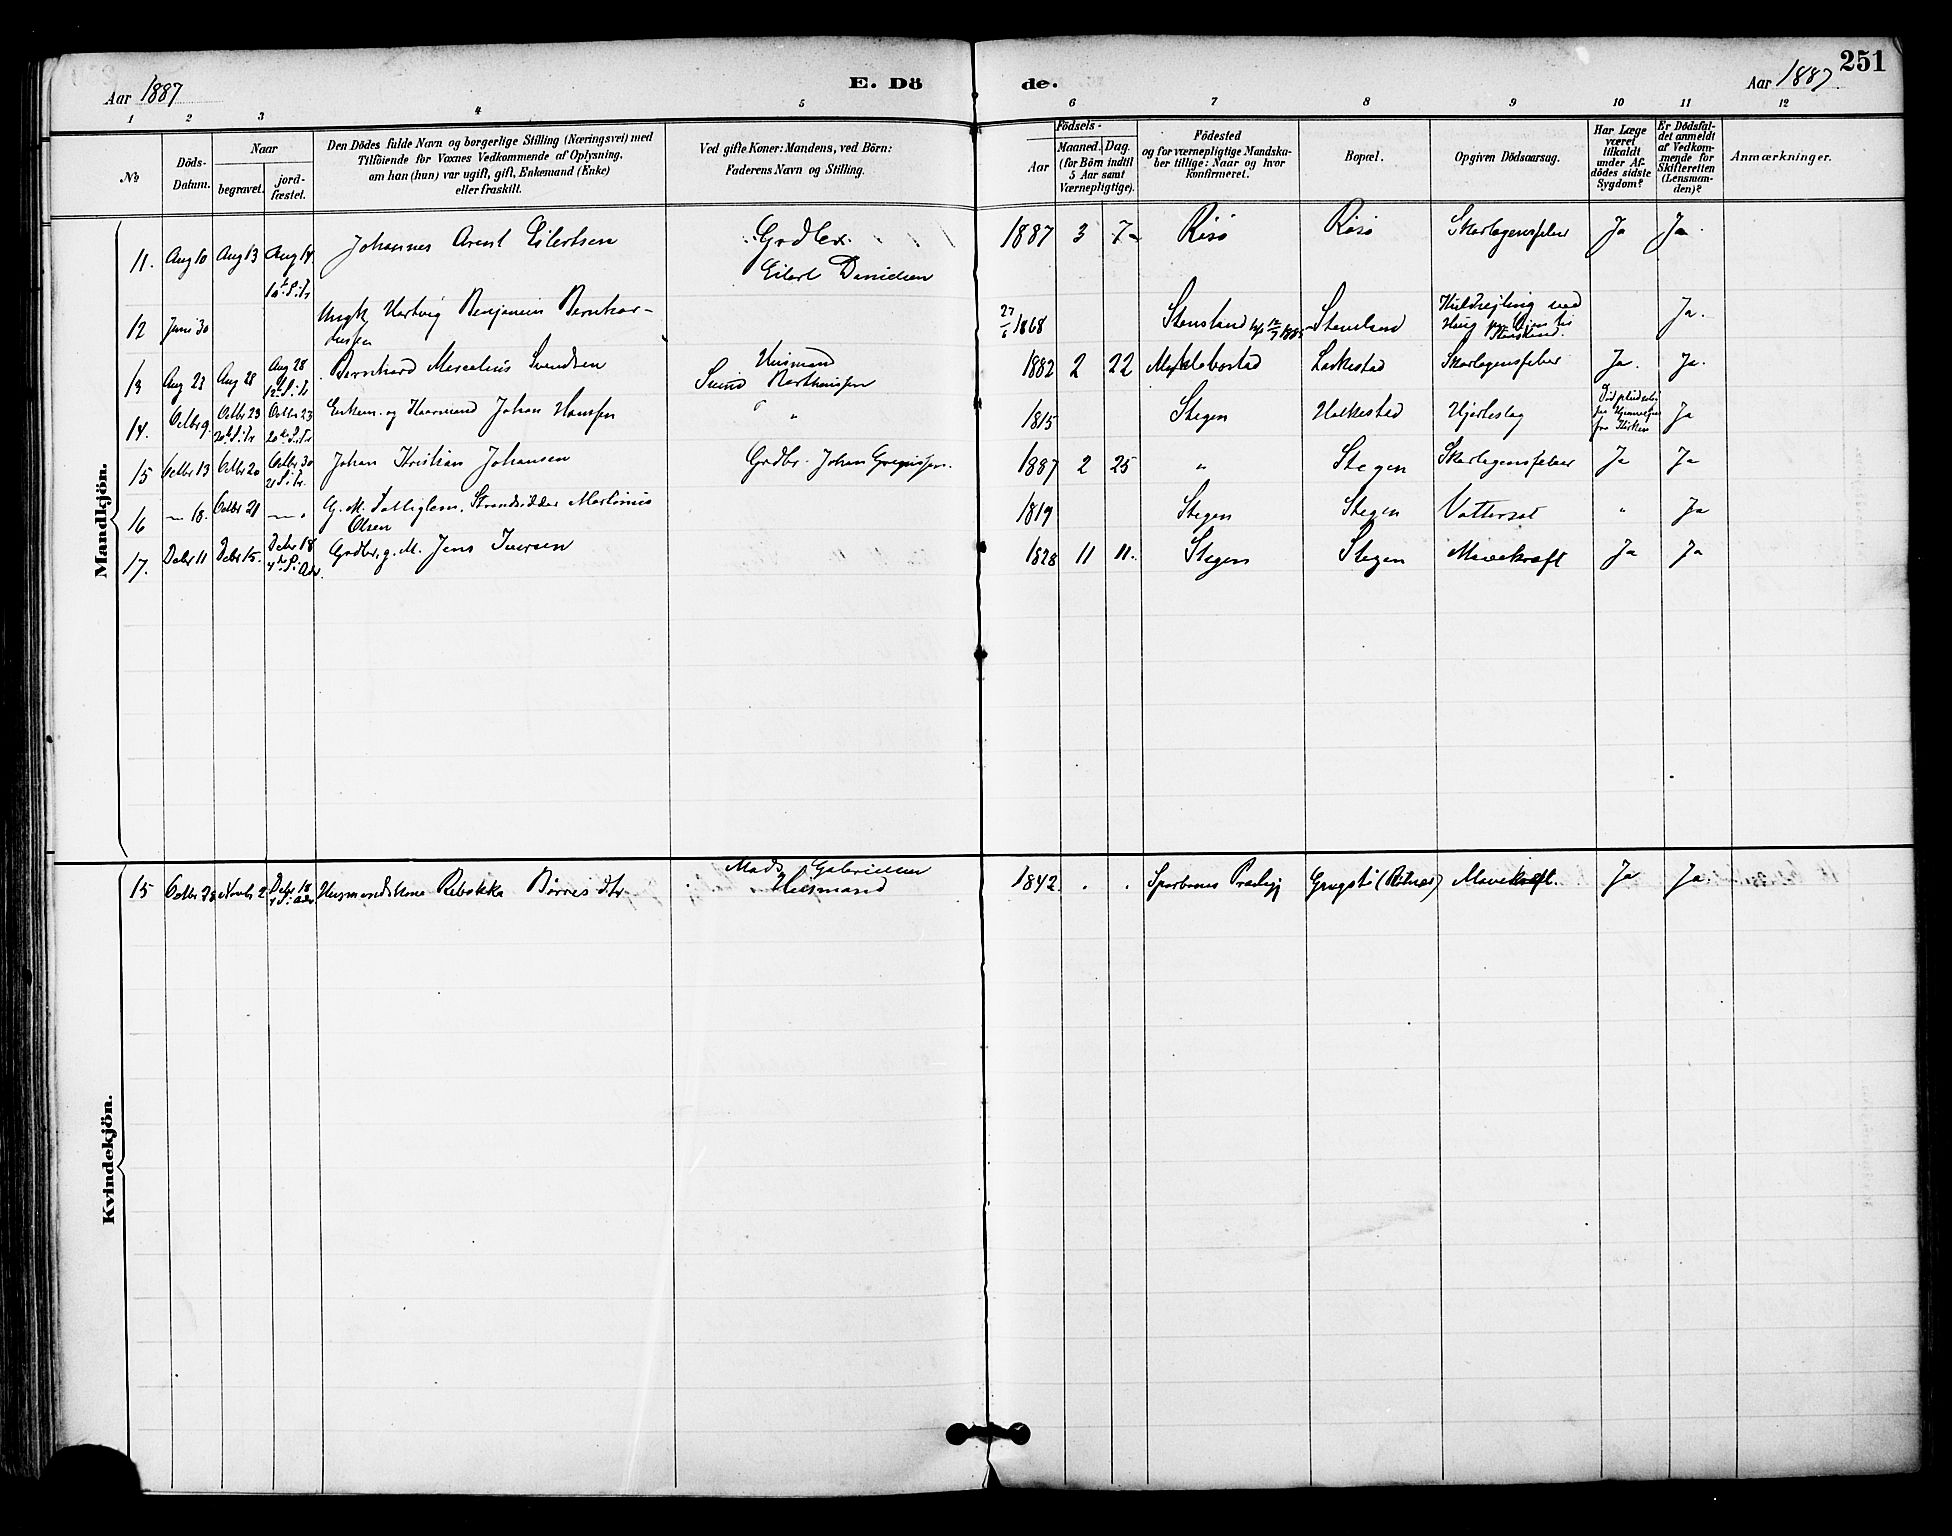 251
Aar 1887 E. Dö de. Aar 1887
1 2 3 4 5 6 7 8 9 10 11 12
No
Döds-Datum.
Naar
begravet.
jordfæstet.
Den Dödes fulde Navn og borgerlige Stilling (Næringsvei) med
Tilföiende for Voxnes Vedkommende af Oplysning,
om han (hun) var ugift, gift, Enkemand (Enke)
eller fraskilt.
Ved gifte Koner: Mandens, ved Börn:
Faderens Navn og Stilling.
Födsels-
Aar
Maaned. Dag.
(for Börn indtil
5 Aar samt
Værnepligtige).
Födested
og for værnepligtige Mandska-
ber tillige: Naar og hvor
konfirmeret.
Bopæl.
Opgiven Dödsaarsag.
Har Læge
været
tilkaldt
under Af-
dödes sidste
Sygdom?
Er Dödsfal-
det anmeldt
af Vedkom-
mende for
Skifteretten
(Lensman-
den)?
Anmærkninger.
Mandkjön.
11. Aug 10 Aug 13 Aug 14 Johannes Arent Eilertsen Eilert Danielsen 1887 3 7 Risø Risø Skarlagensfeber Ja Ja.
12 Juni 30 Ungk Hartvig Benjamin Bernhar-
dussen 27/6 1868 Stensland Stensland Ja.
13 Aug 23 Aug 28 Aug 28 Bernhard Svendsen Husmand
1882 2 22 Skarlagensfeber Ja. Ja.
14. Octbr 9. Octbr 23 Octbr 23 Enkem. og Johan Hansen 1815 Stegen Hjerteslag Ja
15 Octbr 13 Octbr 20 Octbr 30 Johan Kristian Johansen Grdbr. Johan 1887 2 25 " Stegen Skarlagensfeber Ja Ja
16 — 18. Octbr 21 — " G. M. Martinus
Olsen 1819 Stegen Stegen Vattersot " Ja
17. Decbr 11 Decbr 15. Decbr 18 Grdbr, g. M. Jens Iversen 1828 11 11. Stegen Stegen Mavekræft Ja Ja
Kvindekjön.
15 Octbr 28 Novbr 2 Decbr 18 Husmandskone Rebekka Børresdtr Mads Gabrielsen
Husmand 1842 . . Mavekræft. Ja Ja.